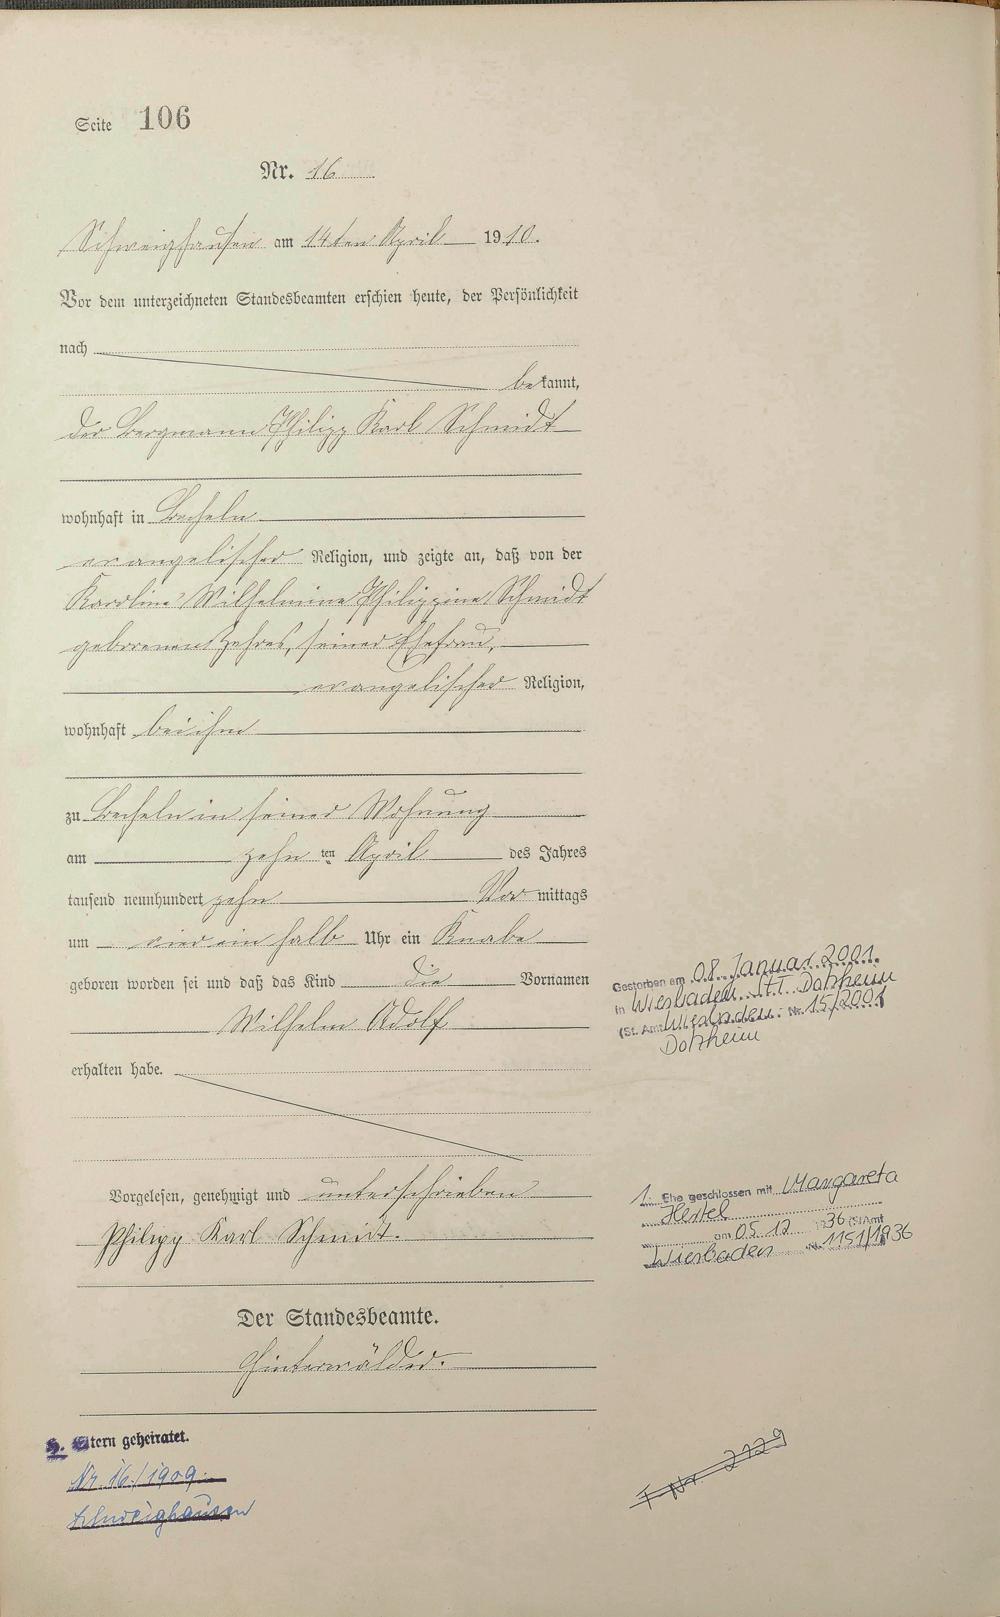 Seite 106
Nr. 16
Schweighausen am 14ten April 1910.
Vor dem unterzeichneten Standesbeamten erschien heute, der Persönlichkeit
nach
bekannt,
der Bergmann Philipp Karl Schmidt
wohnhaft in Becheln
evangelischer Religion, und zeigte an, daß von der
Karoline Wilhelmine Philippine Schmidt
geborenen, seiner Ehefrau,
evangelischer Religion,
wohnhaft bei ihm
zu Becheln in seiner Wohnung
am zehnten April des Jahres
tausend neunhundert zehn Vormittags
um vier ein halb Uhr ein Knabe
geboren worden sei und daß das Kind die Vornamen
Wilhelm Adolf
erhalten habe.
Vorgelesen, genehmigt und unterschrieben
Philipp Karl Schmidt.
Der Standesbeamte.
Hinterwälder.
Gestorben am 08. Januar 2001.
in Wiesbaden Dotzheim
(St. Amt Wiesbaden Nr. 15/2001
Dotzheim
1. Ehe geschlossen mit Margareta
Hertel
am 05.12 1936 (St.Amt
Wiesbaden Nr. 1151/1936
Eltern geheiratet.
Nr. 16/1909.
Schweighausen
Nr. 2129